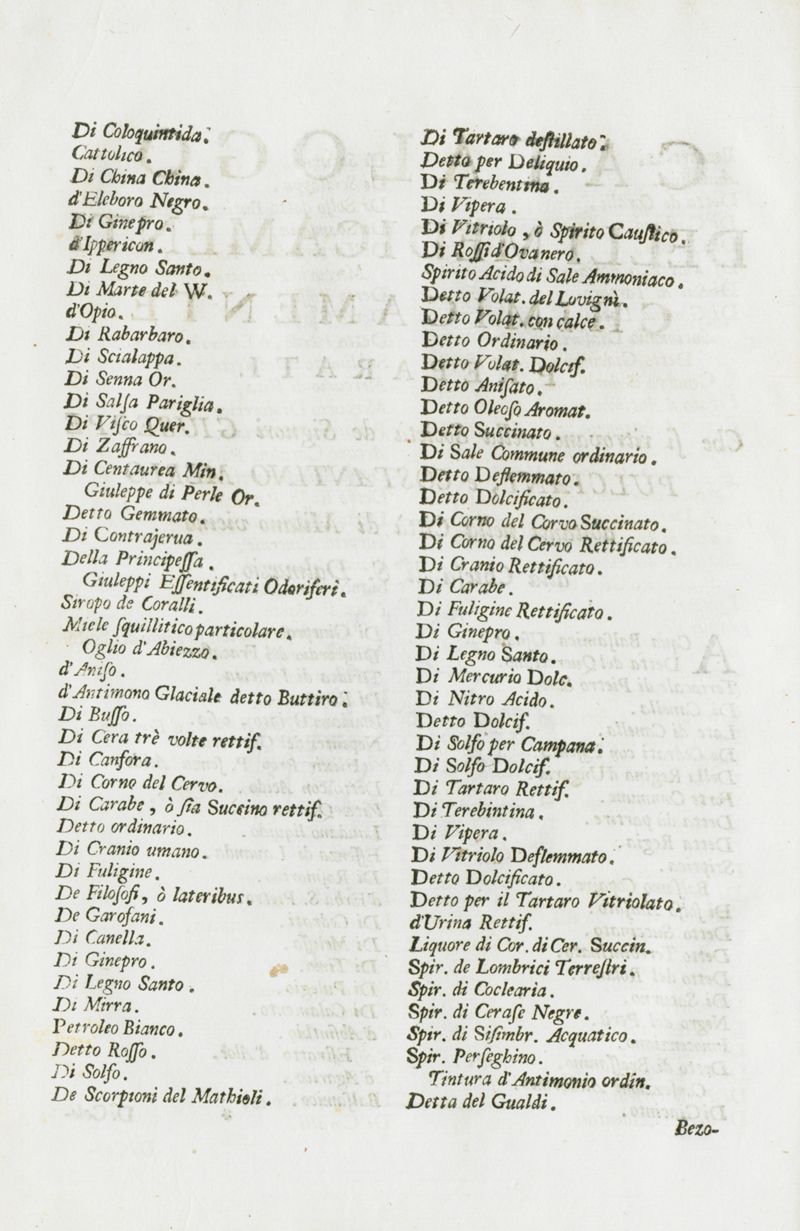 Di Coloquintida.
Cattolico.
Di China China.
d'Eleboro Negro.
Di Ginepro.
d'Ippericon.
Di Legno Santo.
Di Marte del W.
d'Opio.
Di Rabarbaro.
Di Scialappa.
Di Senna Or.
Di Salſa Pariglia.
Di Viſco Quer.
Di Zaffrano.
Di Centaurea Min.
Giuleppe di Perle Or.
Detto Gemmato.
Di Contrajerua.
Della Principeſſa.
Giuleppi Eſſentificati Odoriferi.
Siropo de Coralli.
Miele ſquillitico particolare.
Oglio d'Abiezzo.
d'Aniſo.
d'Antimono Glaciale detto Buttiro.
Di Buſſo.
Di Cera trè volte rettif.
Di Canfora.
Di Corno del Cervo.
Di Carabe, ò ſia Succino rettif.
Detto ordinario.
Di Cranio umano.
Di Fuligine.
De Filoſofi, ò lateribus.
De Garofani.
Di Canella.
Di Ginepro.
Di Legno Santo.
Di Mirra.
Petroleo Bianco.
Detto Roſſo.
Di Solfo.
De Scorpioni del Mathioli.
Di Tartaro deſtillato.
Detto per Deliquio.
Di Terebentina.
Di Vipera.
Di Vitriolo, ò Spirito Cauſtico.
Di Roſſi d'Ova nero.
Spirito Acido di Sale Ammoniaco.
Detto Volat. del Lovignì.
Detto Volat. con calce.
Detto Ordinario.
Detto Volat. Dolcif.
Detto Aniſato.
Detto Oleoſo Aromat.
Detto Succinato.
Di Sale Commune ordinario.
Detto Deflemmato.
Detto Dolcificato.
Di Corno del Corvo Succinato.
Di Corno del Cervo Rettificato.
Di Cranio Rettificato.
Di Carabe.
Di Fuligine Rettificato.
Di Ginepro.
Di Legno Santo.
Di Mercurio Dolc.
Di Nitro Acido.
Detto Dolcif.
Di Solfo per Campana.
Di Solfo Dolcif.
Di Tartaro Rettif.
Di Terebintina.
Di Vipera.
Di Vitriolo Deflemmato.
Detto Dolcificato.
Detto per il Tartaro Vitriolato.
d'Urina Rettif.
Liquore di Cor. di Cer. Succin.
Spir. de Lombrici Terreſtri.
Spir. di Coclearia.
Spir. di Ceraſe Negre.
Spir. di Siſimbr. Acquatico.
Spir. Perſeghino.
Tintura d'Antimonio ordin.
Detta del Gualdi.
Bezo-